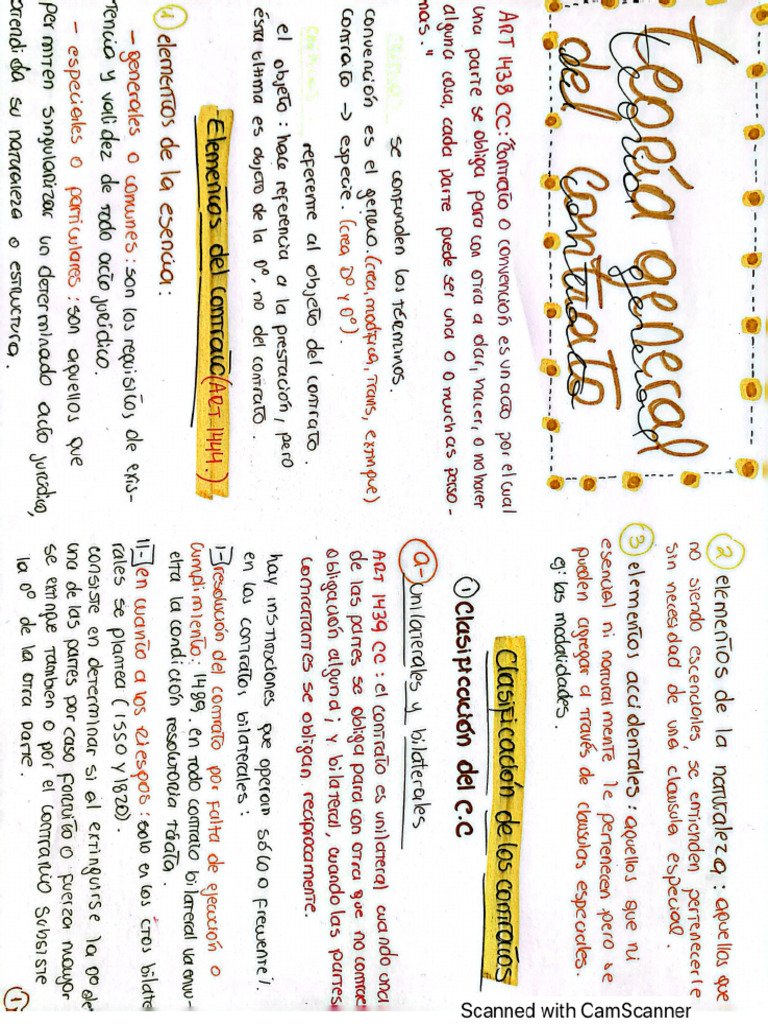 teoría general
del contrato
ART 1438 CC: "contrato o convención es un acto por el cual
una parte se obliga para con otra a dar, hacer, o no hacer
alguna cosa, cada parte puede ser una o o muchas perso-
nas."
se confunden los términos.
convención es el género. (crea, modifica, trans, extingue)
contrato → especie. (crea Dº y Oº).
criticas referente al objeto del contrato.
el objeto: hace referencia a la prestación, pero
ésta ultima es objeto de la Oº, no del contrato.
Elementos del contrato (ART 1444.)
1 elementos de la esencia:
- generales o comunes: son los requisitos de exis-
tencia y validez de todo acto jurídico.
- especiales o particulares: son aquellos que
permiten singularizar un determinado acto jurídico,
atendida su naturaleza o estructura.
2 elementos de la naturaleza: aquellos que
no siendo escenciales, se entienden pertenecerle
sin necesidad de una clausula especial.
3 elementos accidentales: aquellos que ni
esencial ni naturalmente le pertenecen pero se
pueden agregar a través de clausulas especiales.
eg: las modalidades.
Clasificación de los contratos
1 Clasificación del C.C
a- Unilaterales y bilaterales
ART 1439 CC: el contrato es unilateral cuando una
de las partes se obliga para con otra que no contrae
obligación alguna; y bilateral, cuando las partes
contratantes se obligan recíprocamente.
hay instituciones que operan sólo o frecuente).
en los contratos bilaterales:
I- resolución del contrato por falta de ejecución o
cumplimiento: 1489. en todo contrato bilateral va envu-
elta la condición resolutoria tácita.
II- en cuanto a los riesgos: solo en los ctos bilate
rales se plantea (1550 y 1820).
consiste en determinar si al extinguirse la Oº de
una de las partes por caso fortuito o fuerza mayor
se extingue también o por el contrario subsiste
la Oº de la otra parte.
1
Scanned with CamScanner